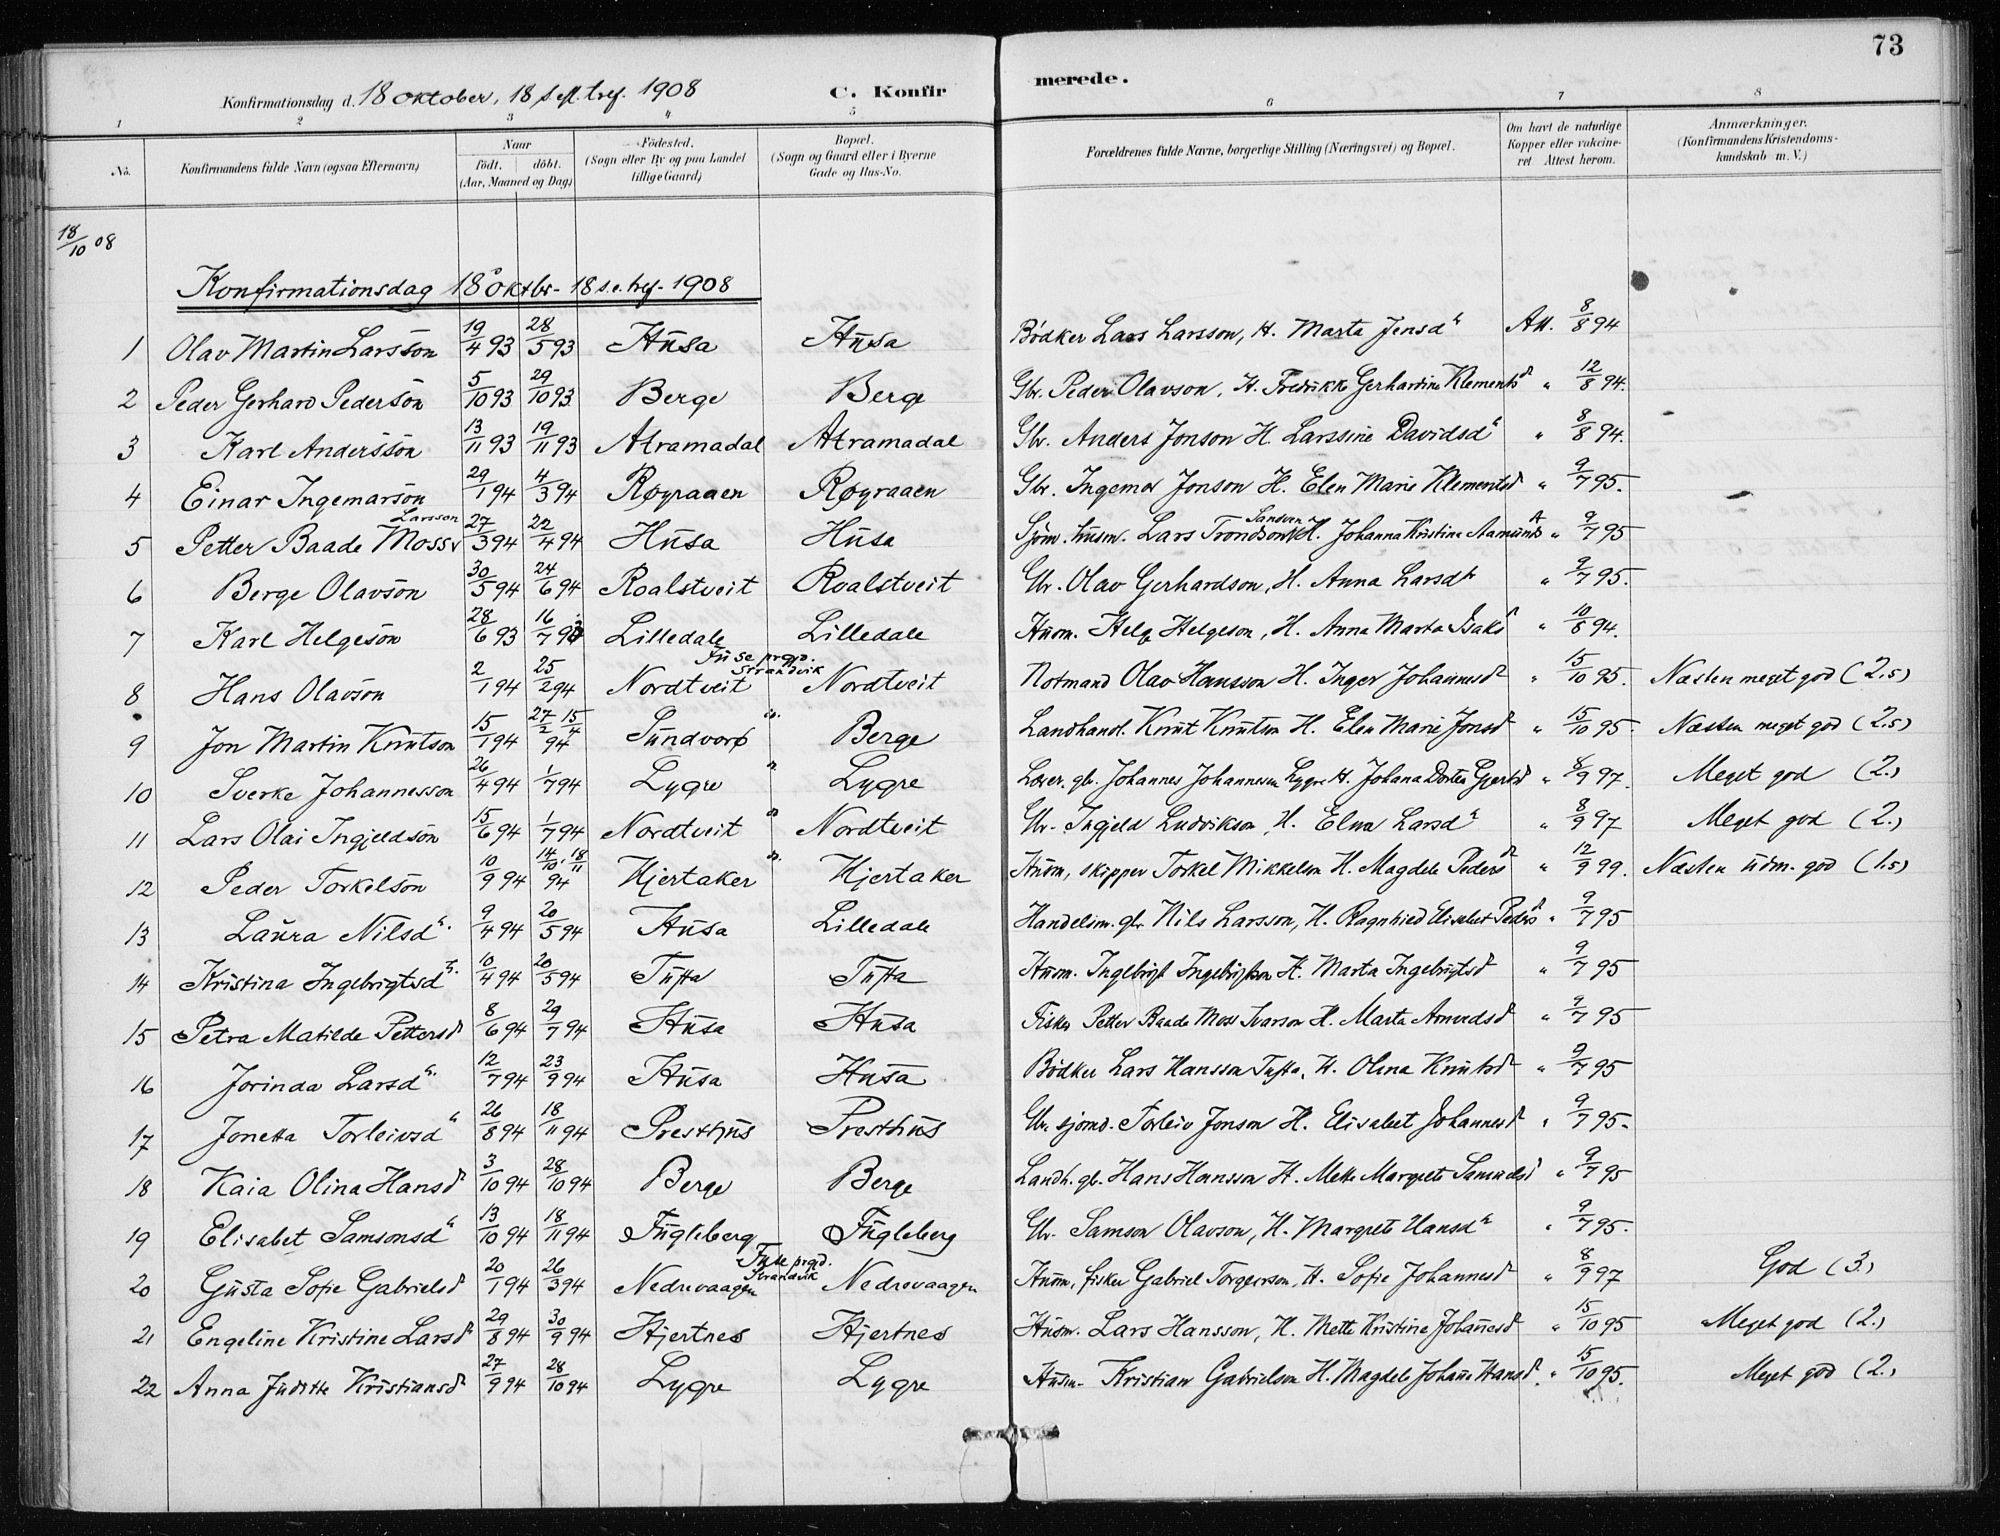 73
Konfirmationsdag d. 18 oktober, 18 s. e. tref. 1908 C. Konfirmerede.
1 2 3 4 5 6 7 8
No. Konfirmandens fulde Navn (ogsaa Efternavn) Naar født. døbt. (Aar, Maaned og Dag) Födested. (Sogn eller By og paa Landet tillige Gaard) Bopæl. (Sogn og Gaard eller i Byerne Gade og Hus-No. Forældrenes fulde Navne, borgerlige Stilling (Næringsvei) og Bopæl. Om havt de naturlige Kopper eller vakcineret Attest herom. Anmærkninger. (Konfirmandens Kristendomskundskab m. V.)
18/10 08
Konfirmationsdag 18 oktbr - 18 s.e. tref - 1908
1 Olav Martin Larsson 19/4 93 28/5 93 Husa Husa Bødker Lars Larsson, H. Marta Jensd Att. 8/8 94
2 Peder Gerhard Pederson 5/10 93 29/10 93 Berge Berge Gbr. Peder Olavson, H. Fredrikke Gerhardine Klementsd " 12/8 94.
3 Karl Andersson 13/11 93 19/11 93 Atramadal Atramadal Gbr. Anders Jonson H. Larssine Davidsd " 8/8 94.
4 Einar Ingemarson 29/1 94 4/3 94 Røyraaen Røyraaen Gbr. Ingemar Jonson H. Elen Marie Klementsd " 9/7 95.
5 Petter Baade Moss Larsson 27/3 94 22/4 94 Husa Husa Sjøm. husm. Lars Trondson Sandven H. Johanna Kristine Aamundsd " 9/7 95
6 Berge Olavson 30/5 94 24/6 94 Roalstveit Roalstveit Gbr. Olav Gerhardson, H. Anna Larsd " 9/7 95.
7 Karl Helgeson 28/6 93 16/7 93 Lilledale Lilledale Husm. Helge Helgeson, H. Anna Marta Isaksd " 10/8 94.
8 Hans Olavson 2/1 94 25/2 94 Nordtveit Fuse prgjd. Strandvik Nordtveit Notmand Olav Hansson H. Inger Johannesd " 15/10 95. Næsten meget god (2.5)
9 Jon Martin Knutson 15/1 94 27/2 15/4 94 Sundvorø " Berge Landhand. Knut Knutson H. Elen Marie Jonsd " 15/10 95. Næsten meget god (2.5)
10 Sverke Johannesson 26/4 94 1/7 94 Lygre " Lygre Lærer, gb. Johannes Johannesen Lygre H. Johana Dortea Gjertsd " 8/9 97. Meget god (2.)
11 Lars Olai Ingjeldson 15/6 94 1/7 94 Nordtveit " Nordtveit Gbr. Ingjeld Ludvikson, H. Elna Larsd " 8/9 97 Meget god (2.)
12 Peder Torkelson 10/9 94 14/10 18/11 94 Hjertaker " Hjertaker Husm, skipper Torkel Mikkelson H. Magdele Pedersd " 12/9 99. Næsten udm. god (1.5)
13 Laura Nilsd. 9/4 94 20/5 94 Husa Lilledale Handelsm. gbr Nils Larsson, H. Ragnhild Elisabet Pedersd " 9/7 95
14 Kristina Ingebrigtsd. 10/4 94 20/5 94 Tufta Tufta Husm. Ingebrigt Ingebrigtson H. Marta Ingebrigtsd " 9/7 95
15 Petra Matilde Pettersd 8/6 94 29/7 94 Husa Husa Fisker Petter Baade Moss Ivarson H. Marta Amundsd " 9/7 95
16 Jorinda Larsd 12/7 94 23/9 94 Husa Husa Bødker Lars Hansson Tufta, H. Olina Knutsd " 9/7 95
17 Jonetta Torleivsd 26/8 94 18/11 94 Presthus Presthus Gbr. sjømd. Torleiv Jonson H. Elisabet Johannesd " 9/7 95.
18 Kaia Olina Hansd 3/10 94 28/10 94 Berge Berge Landh. gb. Hans Hansson H. Mette Margrete Samuelsd " 9/7 95
19 Elisabet Samsonsd 13/10 94 18/11 94 Fugleberg Fugleberg Gbr. Samson Olavson, H. Margrete Hansd " 9/7 95.
20 Gusta Sofie Gabrielsd 20/1 94 26/3 94 Nedrevaagen Fuse prgd. Strandvik Nedrevaagen Husm, fisker Gabriel Torgerson, H. Sofie Johannesd " 8/9 97 God (3.)
21 Engeline Kristine Larsd 29/8 94 30/9 94 Hjertnes Hjertnes Husm. Lars Hansson, H. Mette Kristine Johannesd " 15/10 95 Meget god (2.)
22 Anna Juditte Kristiansd 27/9 94 28/10 94 Lygre Lygre Husm. Kristian Gabrielson H. Magdele Johanne Hansd. " 15/10 95. Meget god (2.)